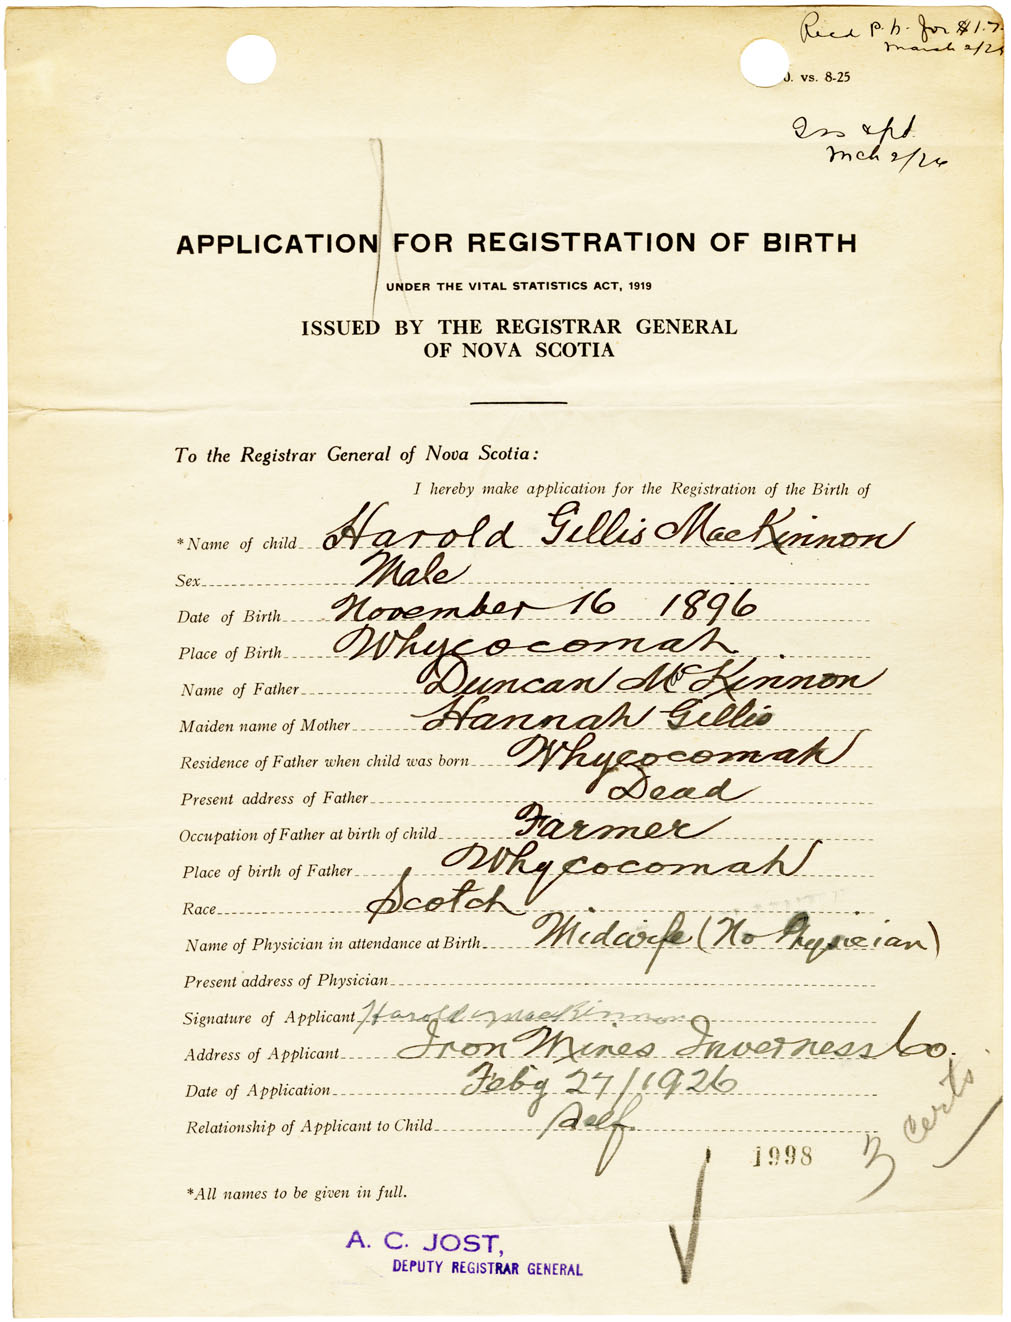 Recd P. N. for $1.7
March 2/26
0. vs. 8-25
Iss & pd.
Mch 2/26
APPLICATION FOR REGISTRATION OF BIRTH
UNDER THE VITAL STATISTICS ACT, 1919
ISSUED BY THE REGISTRAR GENERAL
OF NOVA SCOTIA
To the Registrar General of Nova Scotia:
I hereby make application for the Registration of the Birth of
*Name of child Harold Gillis MacKinnon
Sex Male
Date of Birth November 16 1896
Place of Birth Whycocomah
Name of Father Duncan McKinnon
Maiden name of Mother Hannah Gillis
Residence of Father when child was born Whycocomah
Present address of Father Dead
Occupation of Father at birth of child Farmer
Place of birth of Father Whycocomah
Race Scotch
Name of Physician in attendance at Birth Midwife (No Physician)
Present address of Physician
Signature of Applicant Harold G MacKinnon
Address of Applicant Iron Mines Inverness Co.
Date of Application Feby 27/1926
Relationship of Applicant to Child Self
3 certs
1998
*All names to be given in full.
A. C. JOST,
DEPUTY REGISTRAR GENERAL